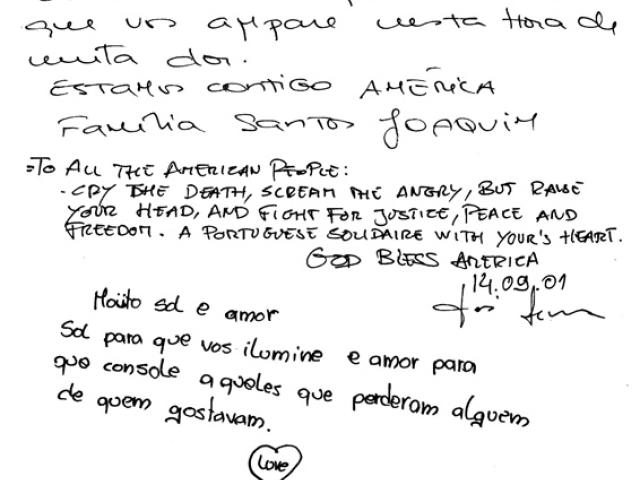 que vos ampare nesta Hora de
muita dor.
ESTAMOS CONTIGO AMÉRICA
FAMÍLIA SANTOS JOAQUIM
TO ALL THE AMERICAN PEOPLE:
- CRY THE DEATH, SCREAM THE ANGRY, BUT RAISE
YOUR HEAD, AND FIGHT FOR JUSTICE, PEACE AND
FREEDOM. A PORTUGUESE SOLIDAIRE WITH YOUR'S HEART.
GOD BLESS AMERICA
14.09.01
Muito sol e amor
Sol para que vos ilumine e amor para
que console aqueles que perderam alguem
de quem gostavam.
Love